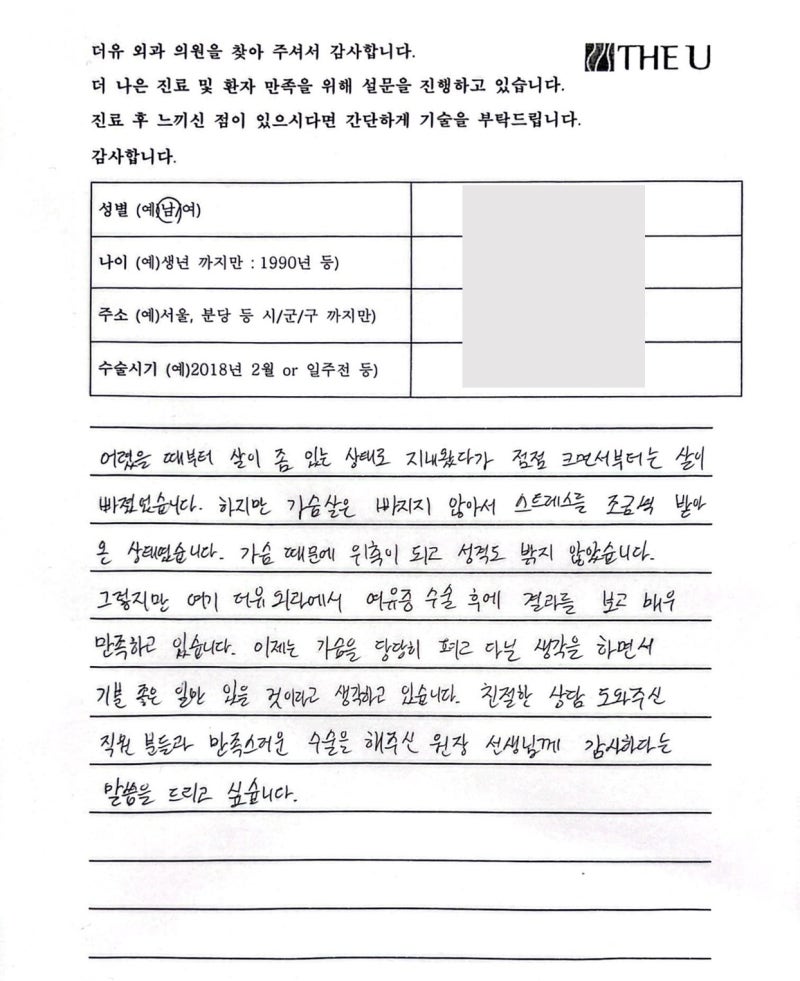 더유 외과 의원을 찾아 주셔서 감사합니다.
THE U
더 나은 진료 및 환자 만족을 위해 설문을 진행하고 있습니다.
진료 후 느끼신 점이 있으시다면 간단하게 기술을 부탁드립니다.
감사합니다.
성별 (예)남/여)
나이 (예)생년 까지만 : 1990년 등)
주소 (예)서울, 분당 등 시/군/구 까지만)
수술시기 (예)2018년 2월 or 일주전 등)
어렸을 때부터 살이 좀 있는 상태로 지내왔다가 점점 크면서부터는 살이
빠졌었습니다. 하지만 가슴살은 빠지지 않아서 스트레스를 조금씩 받아
온 상태였습니다. 가슴 때문에 위축이 되고 성격도 밝지 않았습니다.
그렇지만 여기 더유외과에서 여유증 수술 후에 결과를 보고 매우
만족하고 있습니다. 이제는 가슴을 당당히 펴고 다닐 생각을 하면서
기분 좋은 일만 있을 것이라고 생각하고 있습니다. 친절한 상담 도와주신
직원 분들과 만족스러운 수술을 해주신 원장 선생님께 감사하다는
말씀을 드리고 싶습니다.